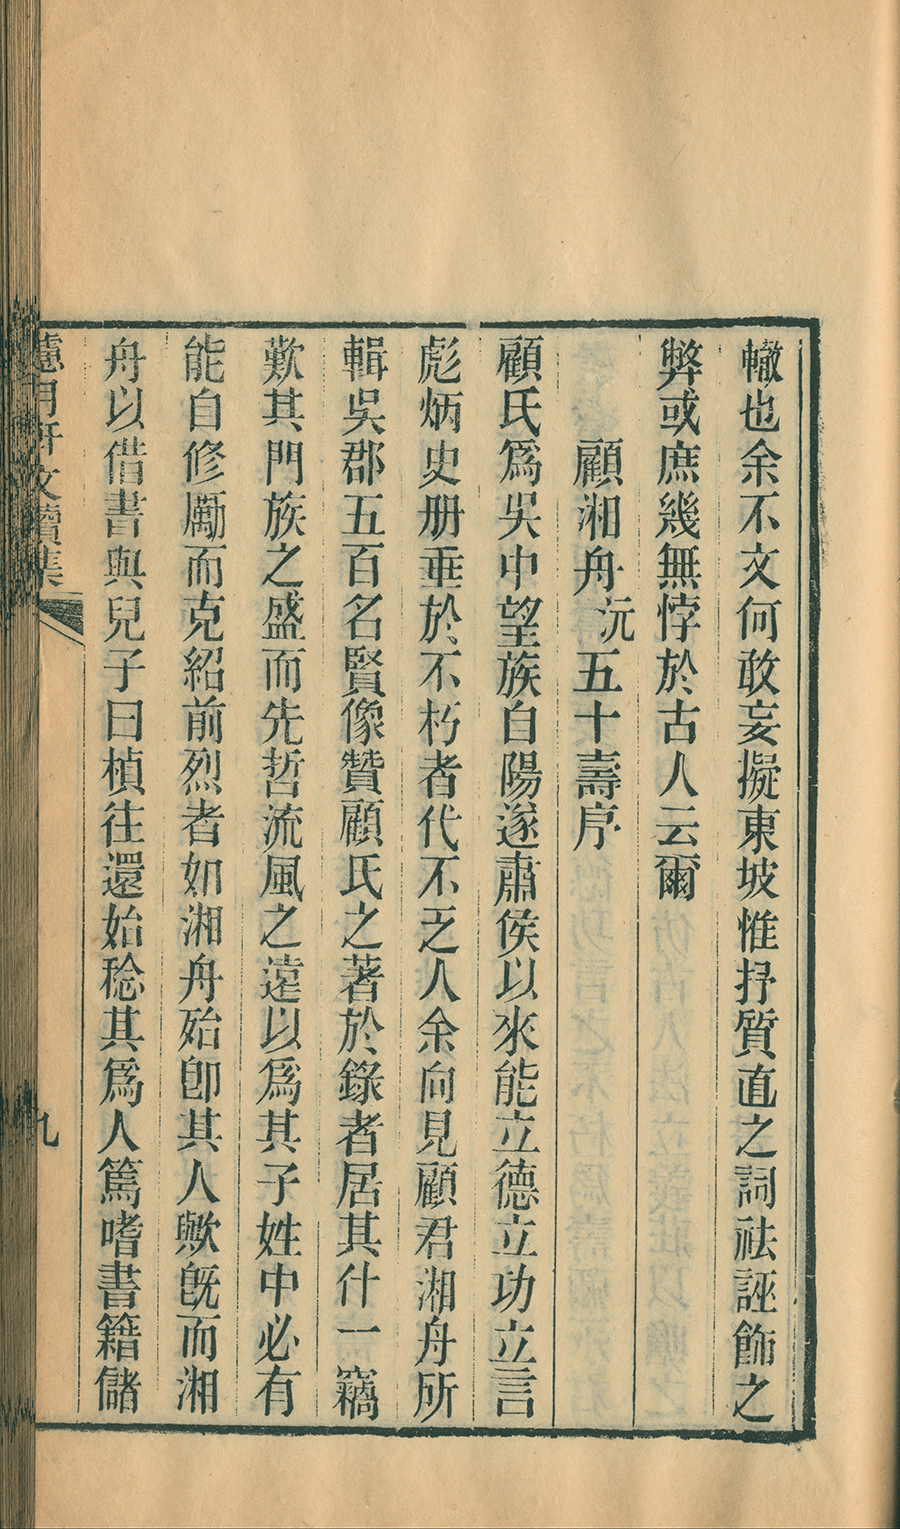 轍也余不文何敢妄擬東坡惟抒質直之詞祛誣飾之
弊或庶幾無悖於古人云爾
顧湘舟沅五十壽序
顧氏爲吳中望族自陽遂肅侯以來能立德立功立言
彪炳史册垂於不朽者代不乏人余向見顧君湘舟所
輯吳郡五百名賢像贊顧氏之著於錄者居其什一竊
歎其門族之盛而先哲流風之遠以爲其子姓中必有
能自修勵而克紹前烈者如湘舟殆卽其人歟旣而湘
舟以借書與兒子曰楨往還始稔其爲人篤嗜書籍儲
月軒文續集
九